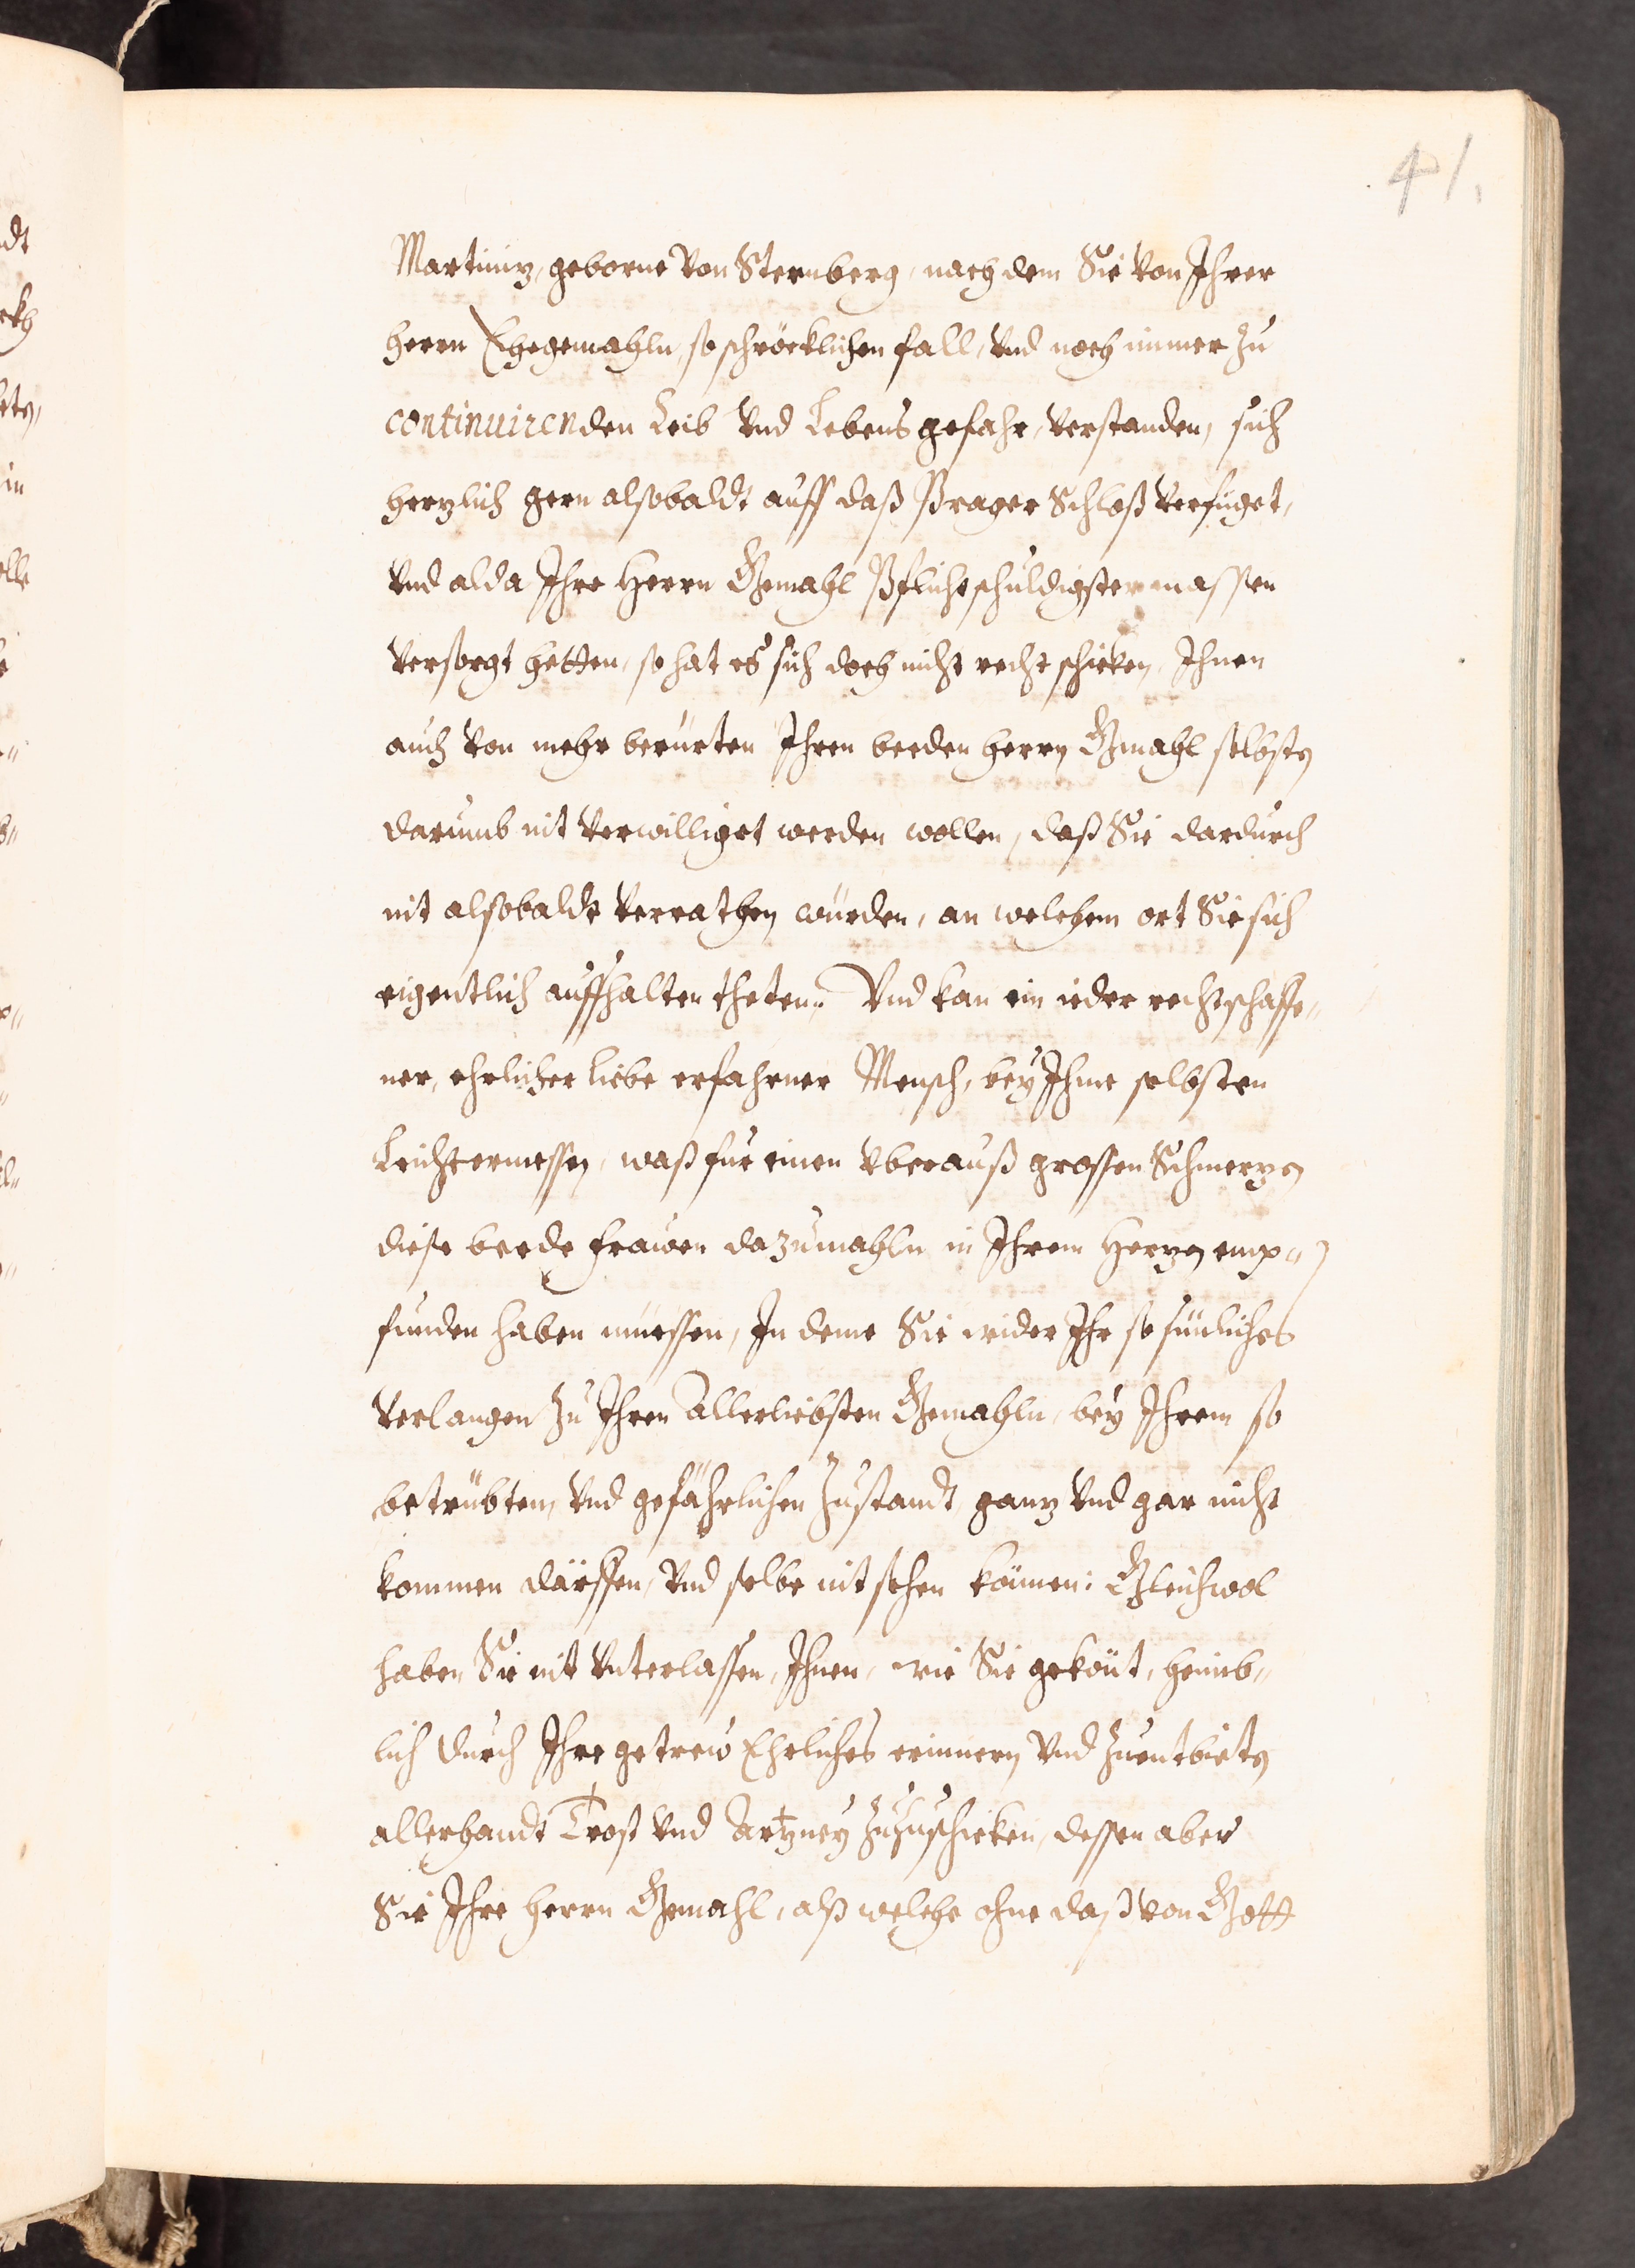 41.
Martiniz, geborne von Sternberg, nach dem Sie von Ihrer
herrn Ehegemahln, so schröcklichen fall, vnd noch immer zu
continuirenden Leib vnd Lebens gefahr, verstanden, sich
herzlich gern alsobaldt auff daß Prager Schloß verfüget,
vnd alda Ihre Herrn Gemahl Pflichtschuldigster massen
versorgt hetten, so hat es sich doch nicht recht schicken, Ihnen
auch von mehr berürten Ihren beeden herrn Gemahl selbsten
darumb nit verwilliget werden wollen, daß Sie dardurch
nit alsobaldt verrathen würden, an welchem ort Sie sich
eigentlich auffhalten theten. Vnd kan ein ieder rechtschaffe„
ner, ehrlicher liebe erfahrner Mensch, bey Ihme selbsten
Leicht ermessen, waß für einen vberauß grossen Schmerzen
diese beede frawen dazumahln in Ihrem Herzen emp„
funden haben müessen, In deme Sie wider Ihr so sinliches
verlangen zu Ihren Allerliebsten Gemahln, bey Ihrem so
betrübten, vnd gefährlichen Zustandt, ganz vnd gar nicht
kommen därffen, vnd selbe nit sehen können: Gleichwol
haben Sie nit vnterlassen, Ihnen, wie Sie gekönt, heimb„
lich durch Ihre getrew Ehrliches erinnern vnd zuentbieten
allerhandt Trost vnd Artzney zuzuschicken, dessen aber
Sie Ihre Herrn Gemahl, alß welche ohne daß von Gott